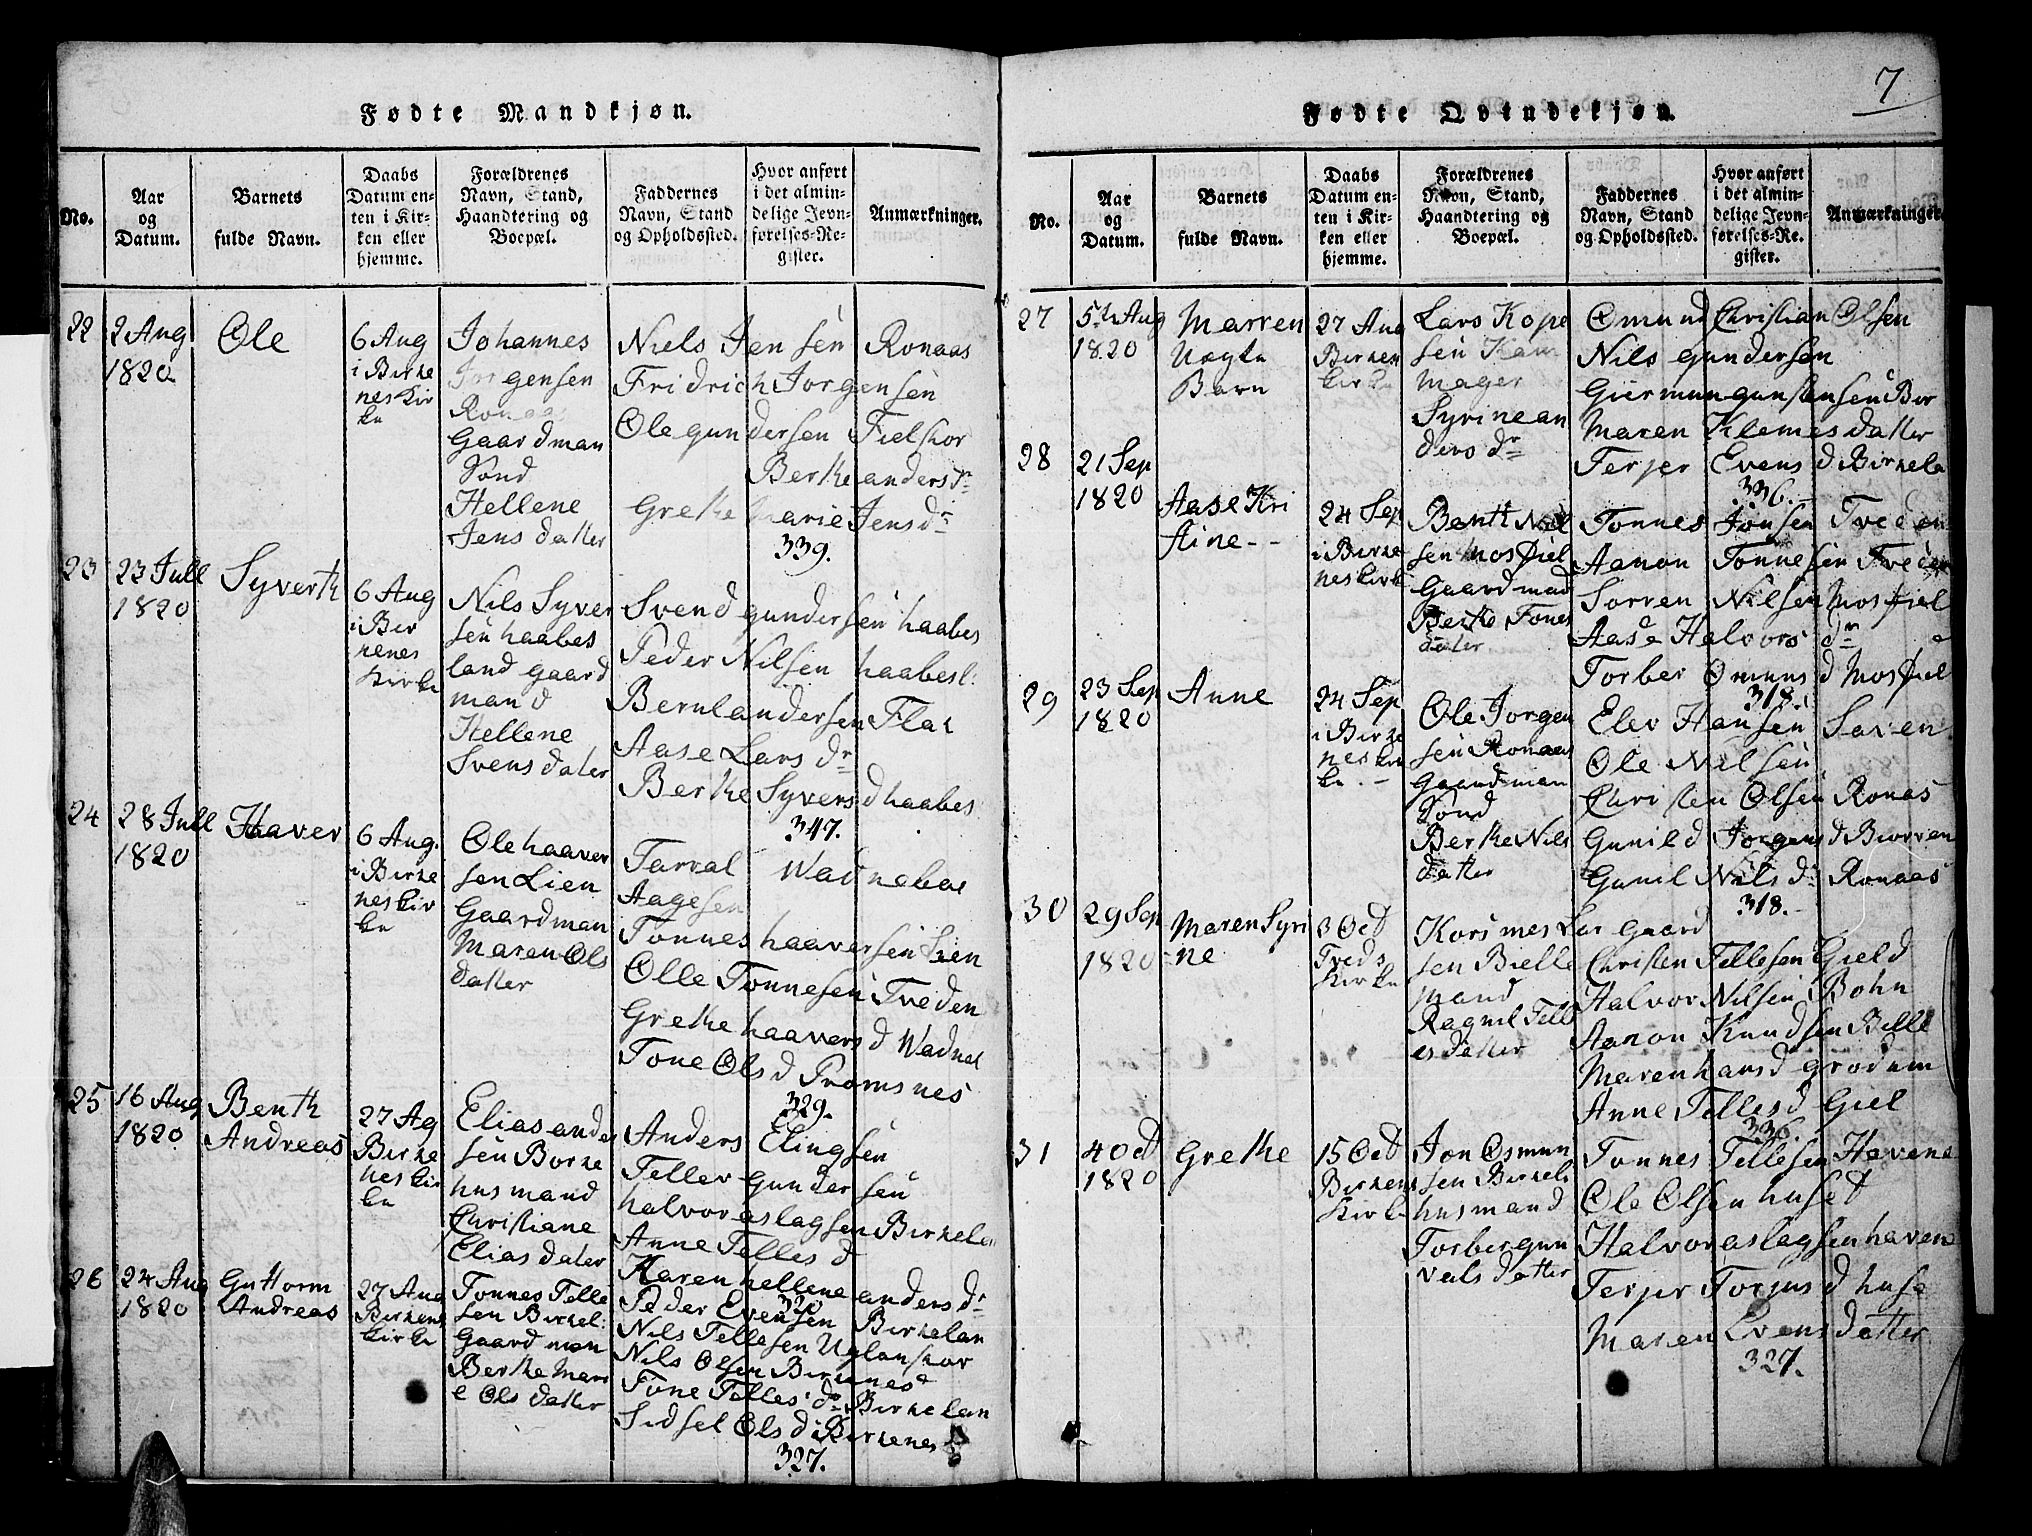 7
Fødte Mandkjøn.
No.
Aar
og
Datum.
Barnets
fulde Navn.
Daabs
Datum en-
ten i Kir-
ken eller
hjemme.
Forældrenes
Navn, Stand,
Haandtering og
Boepæl.
Faddernes
Navn, Stand
og Opholdssted.
Hvor anført
i det almin-
delige Jevn-
førelses-Re-
gister.
Anmærkninger.
22
2 Aug
1820
Ole
6 Aug
i Birke
nes kir
ke
Johannes
Jorgensen
Ronaas
Gaardman
Sønd
Hellene
Jens datter
Niels Jensen Ronaas
Fridrich Jorgensen
Ole gundersen Fielskor
Berthe anders dr
Grethe Marie Jens dr
339.
23
23 Jull
1820
Syverth
6 Aug
i Bir
kenes
Kirke
Nils Syver
sen haabes
land gaard
mand
Hellene
Svens dater
Svend gundersen haabes
Peder Nilsen haabesl:
Bernt andersen Flak
Aase Lars dr
Berthe Syvers d haabes
347.
24
28 Jull
1820
Haaver
6 Aug.
i Birke
nes kir
ke
Ole haaver
sen Lien
Gaardman
Maren Ols
datter
Tarval Wadnebae
Aagesen
Tonnes haaversen Lien
Olle Tonnesen Tveden
Grethe haavers d Wadnel
Tone Ols d Tromsnes
329.
25
16 Aug
1820
Benth
Andreas
27 Ag
Birke
nes kir
ke
Elias ander
sen Borke
husmand
Christiane
Elias dater
Anders Elingsen
Teller Gundersen
halvor aslagsen Birkelen
Anne Telles d
Karen hellene anders dr
320
26
24 Aug
1820
Guttorm
Andreas
27 Aug
Birkens
kirke
Tonnes Telle
sen Birkel:
Gaardman
Berthe Mari
e Ols datter
Peder Evensen Birkelan
Nils Tellesen Uglanskor
Nils Olsen Birkenes
Tone Telles dr Birkelan
Sidsel Ols d Birkenes
327.
Fødte Qvindekjøn.
No.
Aar
og
Datum.
Barnets
fulde Navn.
Daabs
Datum en-
ten i Kir-
ken eller
hjemme.
Forældrenes
Navn, Stand,
Haandtering og
Boepæl.
Faddernes
Navn, Stand
og Opholdssted.
Hvor anført
i det almin-
delige Jevn-
førelses-Re-
gister.
Anmærkninger.
27
5th Aug
1820
Marren
Uægte
Barn
27 Aug
Birken
kirke
Lars Kope
sen Kam
mager
Syrine an
ders dr
Omund Christian Olsen
Nils gundersen
Giermun gunstensen Bir
Maren Klemesdatter
Terjer Evens d Birkela
336.
28
21 Sep
1820
Aase Kri
stine
24 Sep
i Birke
nes kirke
Benth Niel
sen Mosfiel
Gaardmand
Berthe Tones
dater
Tonnes Jonsen Tveden
Aanon Tonnesen Tveden
Sorren Nilsen Mosfiel
Aase Halvors dr
Torber Omuns d Mosfiel
318.
29
23 Sep
1820
Anne
24 Sep
i Birke
nes kir
ke
Ole Jorgen
sen Ronaas
Gaardman
Sønd
Berthe Nils
datter
Elev Hansen Saven
Ole Nilsen
Christen Olsen Ronas
Gunild Jorgens d Biorvan
Gunil Nils dr Ronaas
318.
30
29 Sep
1820
Maren Syri
ne
3 Oct
Tveds
Kirke
Korsmes Lar gaard
sen Bielle
mand
Ragnil Tell
es datter
Christen Tellesen Gield
Halvor Nilsen Bohn
Aanon Knudsen Bille
Maren hans d Grodum
Anne Telles d Giel
336.
31
4 Oct
1820
Grethe
15 Oct
Birkens
Kirke
Jon Osmun
sen Birkel:
husmand
Torber gun
vals datter
Tonnes Tellesen Havene
Ole Olsen huset
Halvor aslagsen haven
Terjer Torjus d huse
Maren Evens datter
327.